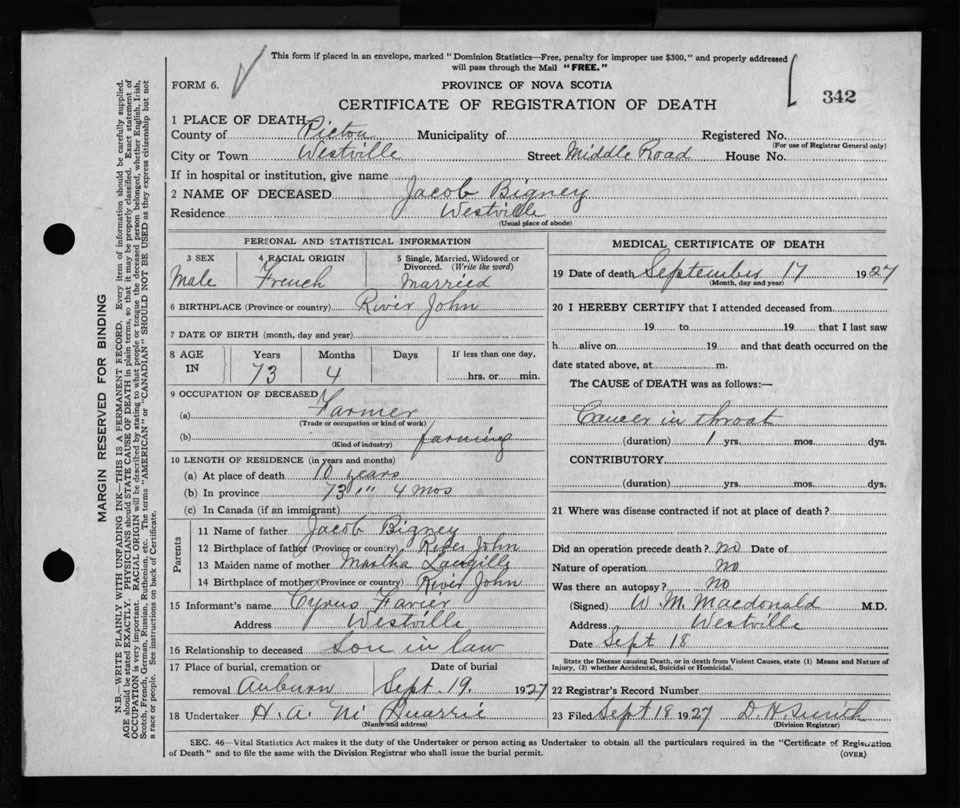 This form if placed in an envelope, marked "Dominion Statistics—Free, penalty for improper use $300," and properly addressed
will pass through the Mail "FREE."
FORM 6.
PROVINCE OF NOVA SCOTIA
342
CERTIFICATE OF REGISTRATION OF DEATH
1 PLACE OF DEATH
County of Pictou Municipality of Registered No.
(For use of Registrar General only)
City or Town Westville Street Middle Road House No.
If in hospital or institution, give name
2 NAME OF DECEASED Jacob Bigney
Residence Westville
(Usual place of abode)
PERSONAL AND STATISTICAL INFORMATION
3 SEX 4 RACIAL ORIGIN 5 Single, Married, Widowed or
Divorced. (Write the word)
Male French Married
6 BIRTHPLACE (Province or country) River John
7 DATE OF BIRTH (month, day and year)
8 AGE Years Months Days If less than one day,
IN 73 4 hrs. or min.
9 OCCUPATION OF DECEASED
(a) Farmer
(Trade or occupation or kind of work)
(b) farming
(Kind of industry)
10 LENGTH OF RESIDENCE (in years and months)
(a) At place of death 10 years
(b) In province 73 " 4 mos
(c) In Canada (if an immigrant)
Parents
11 Name of father Jacob Bigney
12 Birthplace of father (Province or country) River John
13 Maiden name of mother Martha Langille
14 Birthplace of mother (Province or country) River John
15 Informant's name Cyrus
Address Westville
16 Relationship to deceased Son in law
17 Place of burial, cremation or Date of burial
removal Auburn Sept. 19. 1927
18 Undertaker H. A.
(Name and address)
MEDICAL CERTIFICATE OF DEATH
19 Date of death September 17 1927
(Month, day and year)
20 I HEREBY CERTIFY that I attended deceased from
19 to 19 that I last saw
h alive on 19 and that death occurred on the
date stated above, at m.
The CAUSE of DEATH was as follows:—
Cancer in throat
(duration) 1 yrs. mos. dys.
CONTRIBUTORY
(duration) yrs. mos. dys.
21 Where was disease contracted if not at place of death?
Did an operation precede death? no Date of
Nature of operation no
Was there an autopsy? no
(Signed) W. M. Macdonald M.D.
Address Westville
Date Sept 18
State the Disease causing Death, or in death from Violent Causes, state (1) Means and Nature of
Injury, (2) whether Accidental, Suicidal or Homicidal.
22 Registrar's Record Number
23 Filed Sept 18 1927 D. H. Smith
(Division Registrar)
SEC. 46—Vital Statistics Act makes it the duty of the Undertaker or person acting as Undertaker to obtain all the particulars required in the "Certificate of Registration
of Death" and to file the same with the Division Registrar who shall issue the burial permit.
(OVER)
MARGIN RESERVED FOR BINDING
N.B.—WRITE PLAINLY WITH UNFADING INK—THIS IS A PERMANENT RECORD. Every item of information should be carefully supplied.
AGE should be stated EXACTLY. PHYSICIANS should STATE CAUSE OF DEATH in plain terms, so that it may be properly classified. Exact statement of
OCCUPATION is very important. RACIAL ORIGIN will be described by stating to what people or tongue the deceased person belonged, whether English, Irish,
Scotch, French, German, Russian, Ruthenian, etc. The terms "AMERICAN" or "CANADIAN" SHOULD NOT BE USED as they express citizenship but not
a race or people. See instructions on back of Certificate.